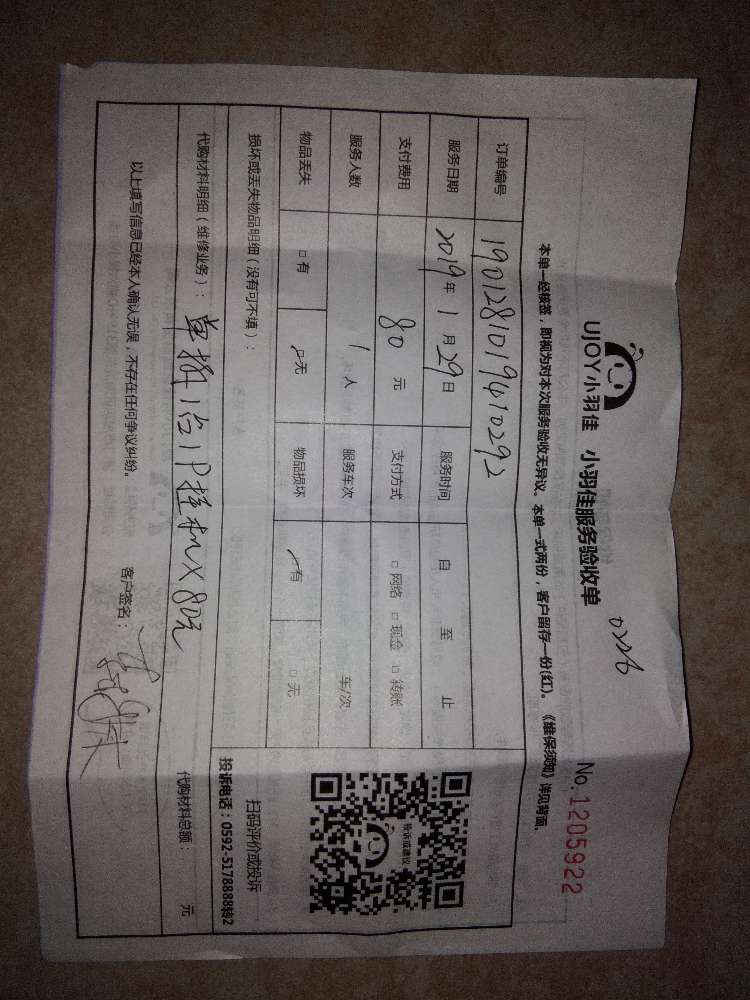 UJOY小羽佳 小羽佳服务验收单
0226
No.1205922
本单一经核签，即视为对本次服务验收无异议。本单一式两份，客户留存一份(红)。《维保须知》详见背面。
订单编号 1901281019410292
服务日期 2019年1月29日 服务时间 自 至 止
支付费用 80元 支付方式 □网络 □现金 □转账
服务人数 1人 服务车次 车/次
物品丢失 □有 □无 物品损坏 □有 □无
损坏或丢失物品明细（没有可不填）：
投诉或建议
扫码评价或投诉
投诉电话：0592-5178888转2
代购材料明细（维修业务）：单拆1台1P挂机X80元
代购材料总额： 元
以上填写信息已经本人确认无误，不存在任何争议纠纷。 客户签名：